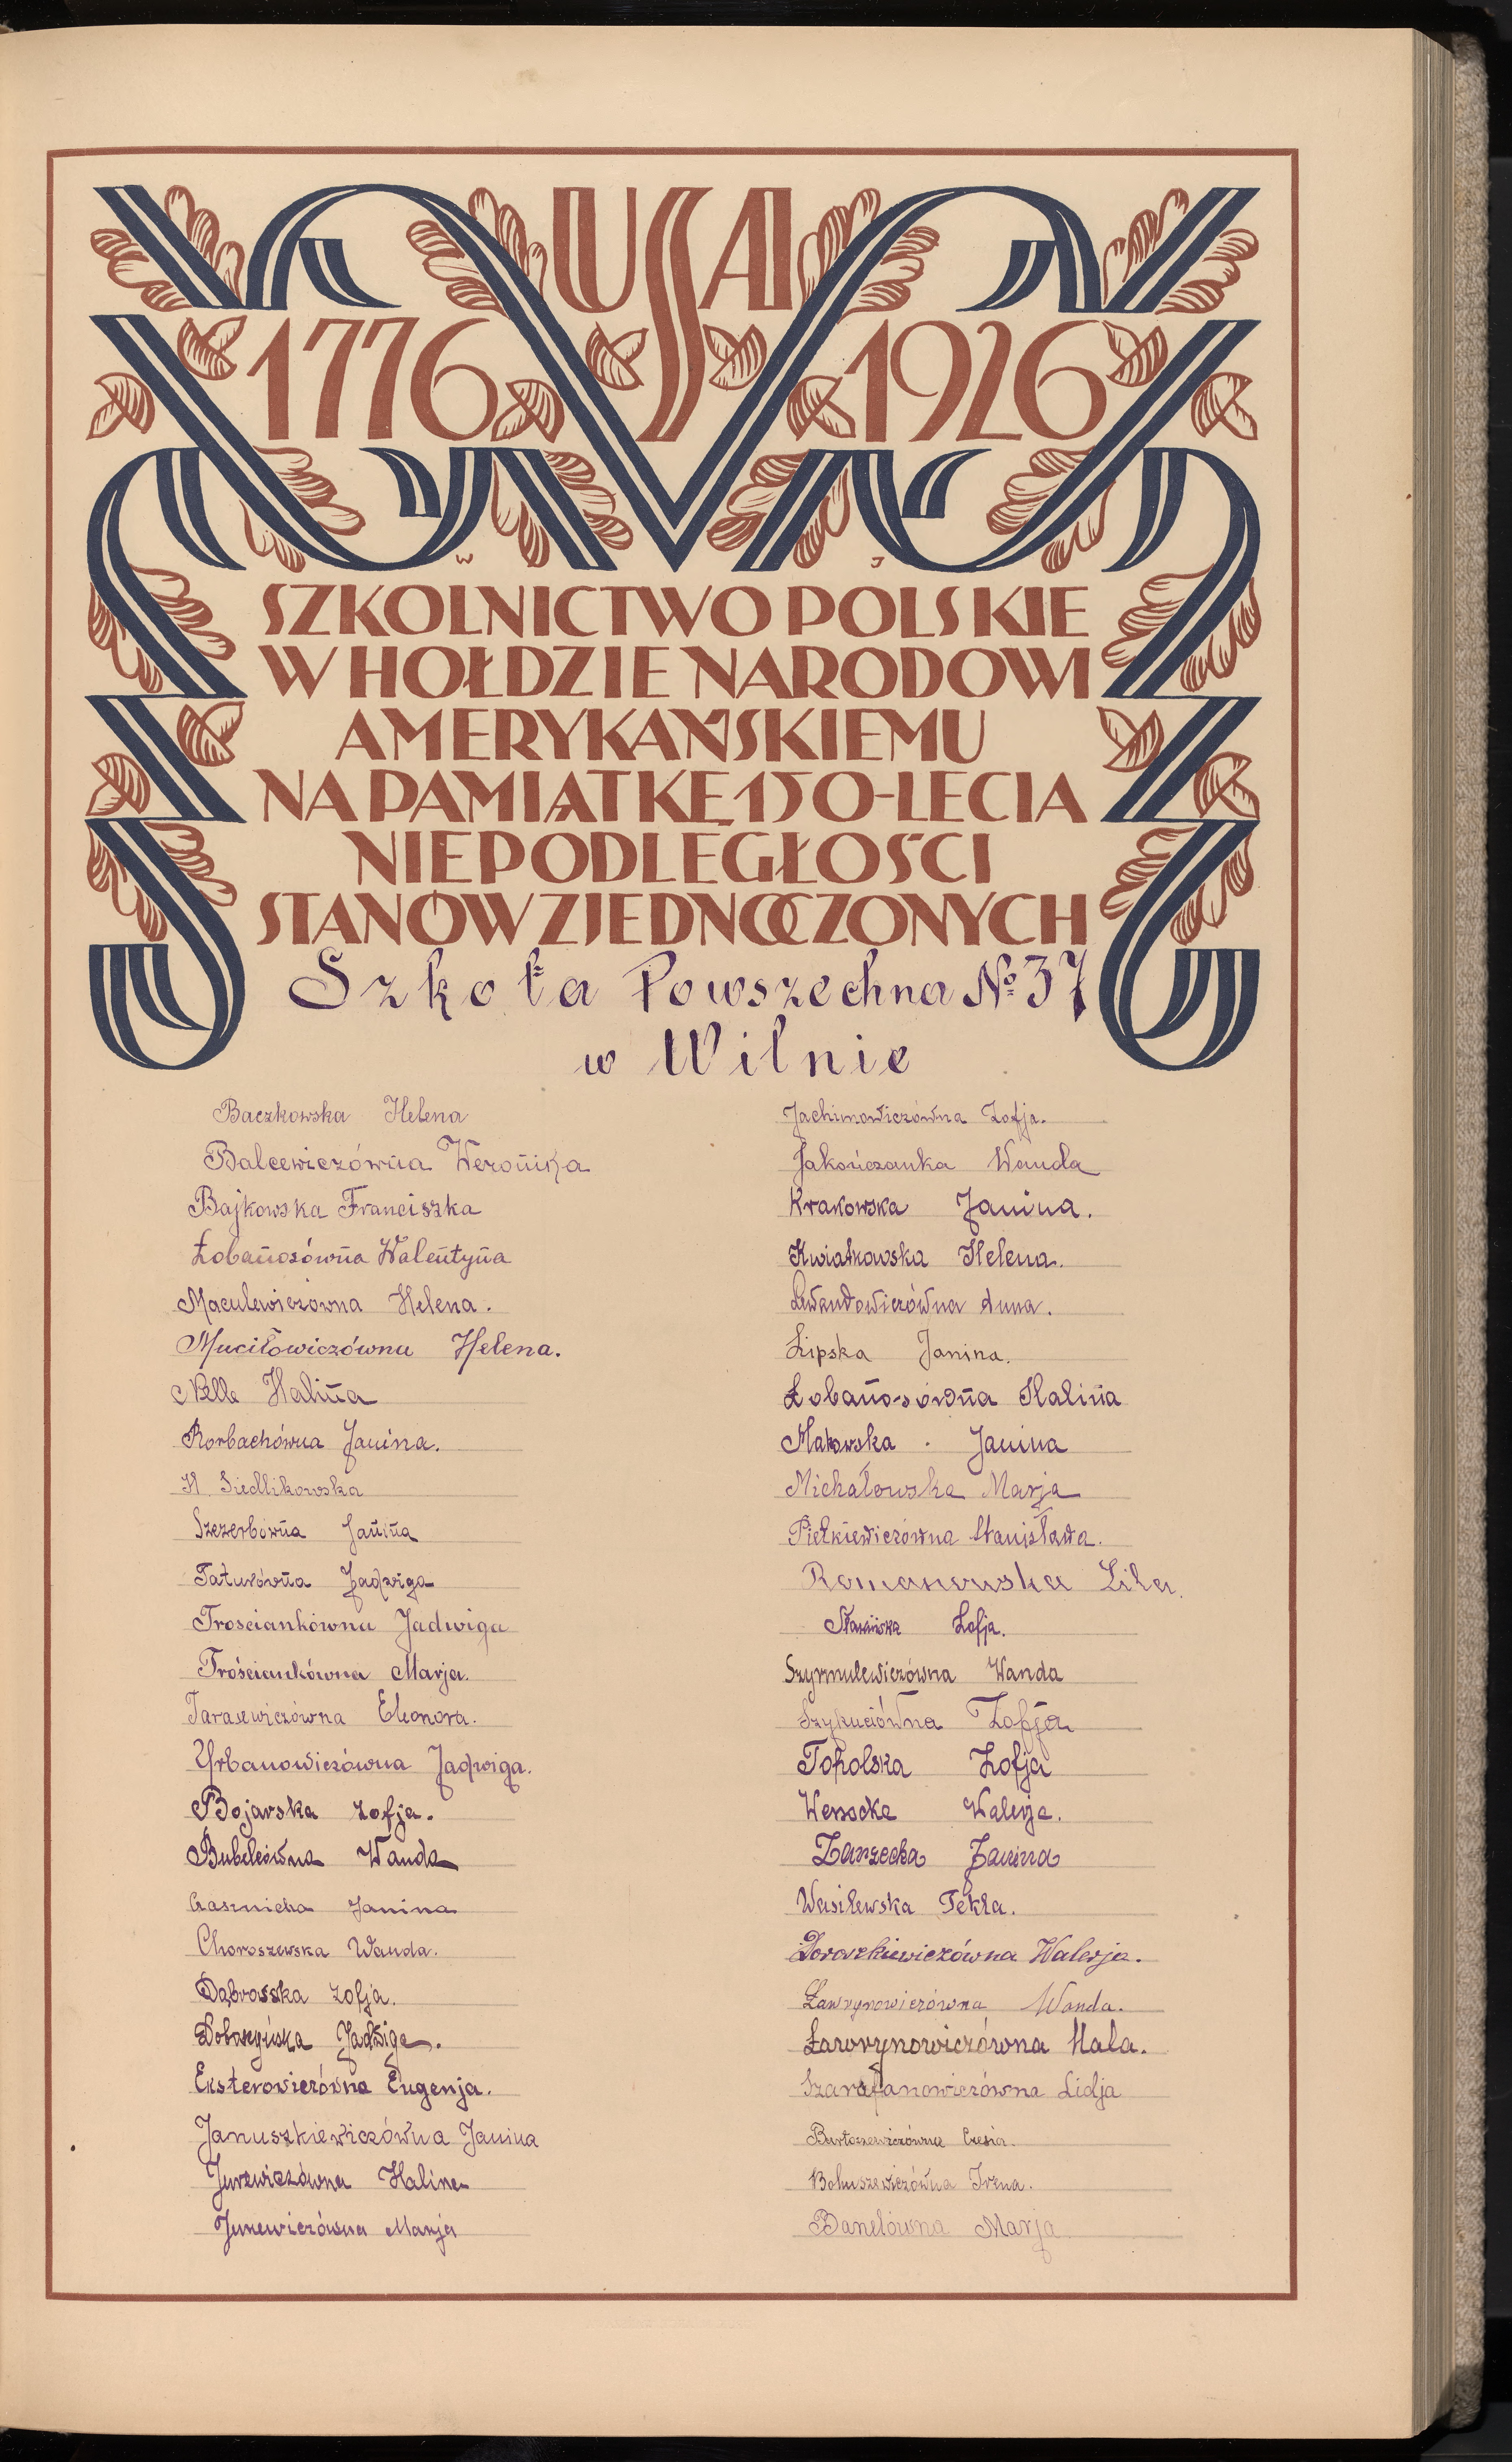 USA
1776 1926
W J
SZKOLNICTWO POLSKIE
W HOŁDZIE NARODOWI
AMERYKAŃSKIEMU
NA PAMIĄTKĘ 150-LECIA
NIEPODLEGŁOŚCI
STANÓW ZJEDNOCZONYCH
Szkoła Powszechna № 37
w Wilnie
Baczkowska Helena
Balcewiczówna Weronika
Bajkowska Franciszka
Łobanosówna Walentyna
Maculewiczówna Helena.
Muciłowiczówna Helena.
Nelle Halina
Rorbachówna Janina.
H. Siedlikowska
Szczerbówna Janina
Taturówna Jadwiga
Trosciankówna Jadwiga
Trościankówna Marja.
Tarasewiczówna Eleonora.
Urbanowiczówna Jadwiga.
Bojarska Zofja.
Bubelówna Wanda
Janina
Choroszewska Wanda.
Dąbrosska Zofja.
Doboszyńska Jadwiga.
Eksterowiczówna Eugenja.
Januszkiewiczówna Janina
Jurewiczówna Halina
Jurewiczówna Marja
Jachimowiczówna Zofja.
Jakończanka Wanda
Krakowska Janina.
Kwiatkowska Helena.
Lewandowiczówna Anna.
Lipska Janina.
Łobanosówna Halina
Makowska Janina
Michałowska Marja
Pietkiewiczówna Stanisława.
Romanowska Lila.
Zofja.
Szyrmulewiczówna Wanda
Szykuciówna Zofja
Topolska Zofja
Walerja.
Zarzecka Janina
Wasilewska Tekla.
Doroszkiewiczówna Walerja.
Ławrynowiczówna Wanda.
Ławrynowiczówna Hala.
Szarafanowiczówna Lidja
Bartoszewiczówna Czesia.
Bohuszewiczówna Irena.
Banelówna Marja.